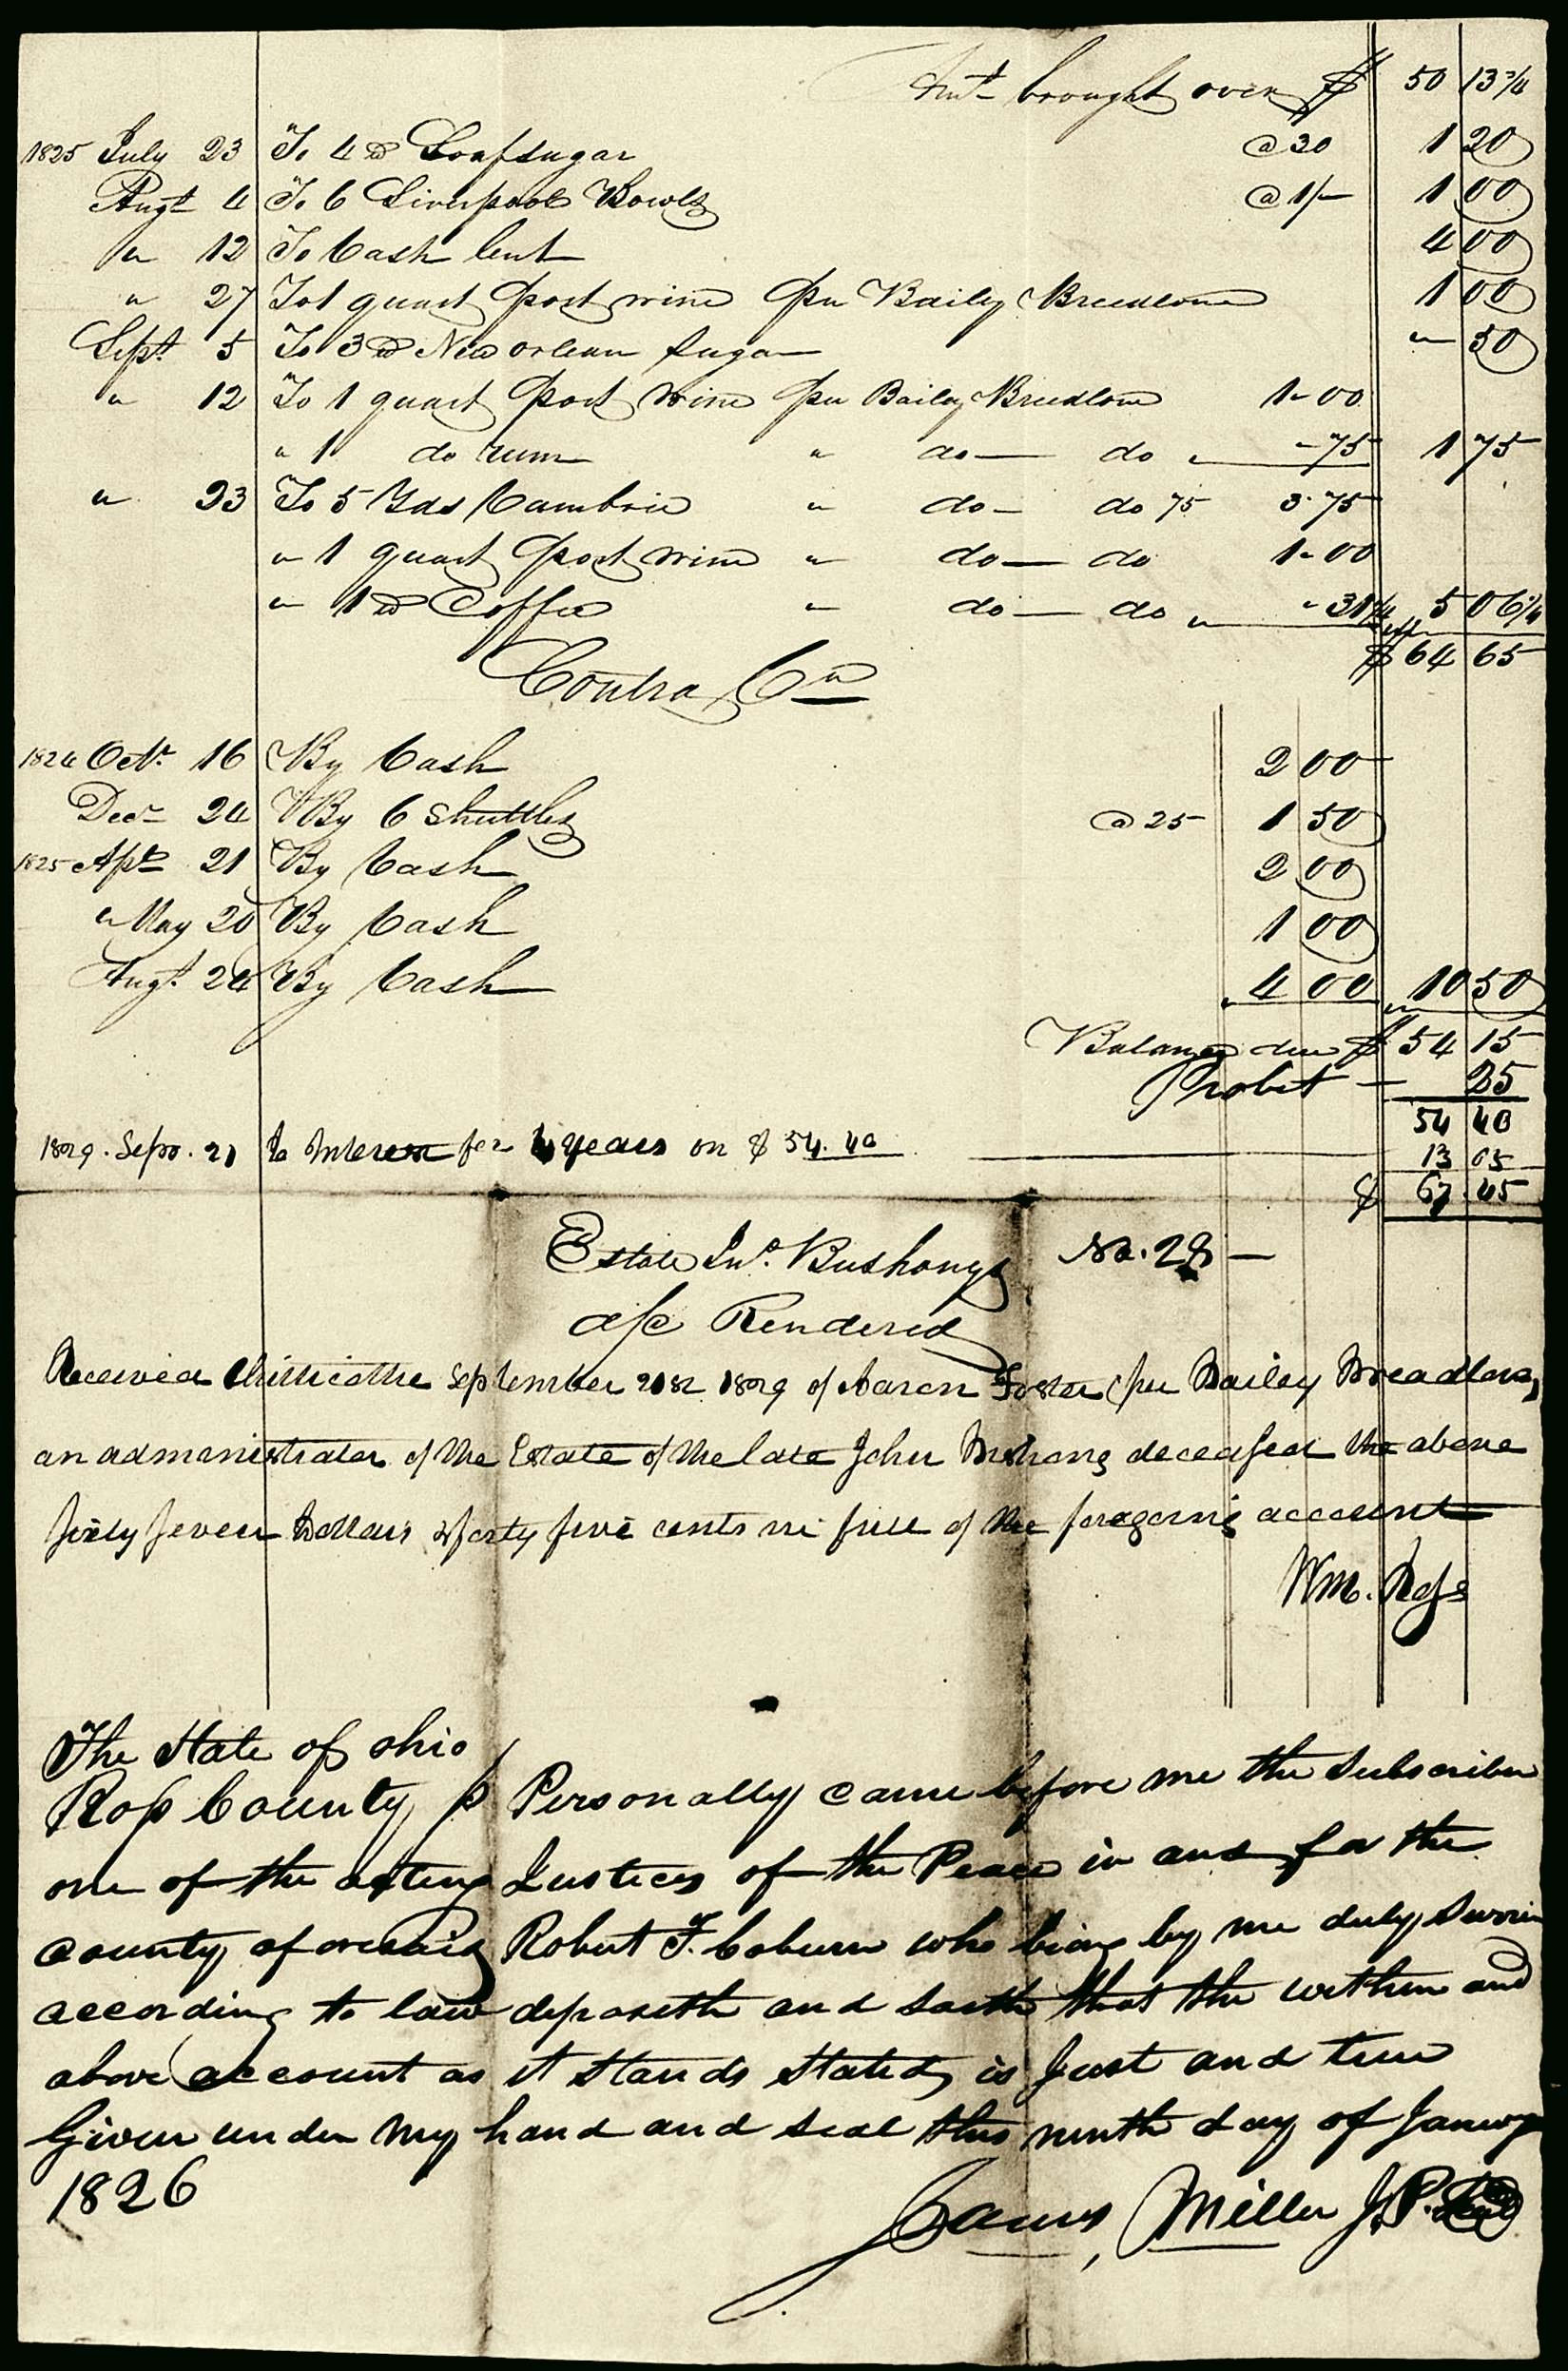 Amt brought over $ 50 13 3/4
1825 July 23 To 4 lb Loafsugar @ 30 1 20
Augt 4 To 6 Liverpool Bowls @ 1/- 1 00
" 12 To Cash lent 4 00
" 27 To 1 quart port wine pr Baily Breedlove 1 00
Sept 5 To 3 lb New orlean Sugar " 50
" 12 To 1 quart port wine pr Baily Breedlove 1-00
" 1 do rum " do — do " -75 1 75
" 23 To 5 Yds Cambric " do - do 75 3.75
" 1 quart port wine " do — do 1-00
" 1 lb Coffee " do — do " - 31 1/4 5 06 1/4
$ 64 65
Contra Cr
1824 Octr 16 By Cash 2 00
Decr 24 By 6 Shuttles @ 25 1 50
1825 Apl 21 By Cash 2 00
" May 20 By Cash 1 00
Augt 24 By Cash 4 00 10 50
Balance due $ 54 15
Probet — 25
54 40
1829. Sepr. 21 To Interest for 4 years on $ 54.40 13 05
$ 67.45
Estate Jno. Bushongs No. 28 —
a/c Rendered
Received Chillicothe September 21st 1829 of Aaron Foster (per Bailey Breadlove)
an administrator of the Estate of the late John Bushong deceased the above
sixty seven Dollars & forty five cents in full of the foregoing account
Wm. Ross
The State of ohio
Ross County ss Personally came before me the Subscriber
one of the acting Justices of the Peace in and for the
county aforesaid Robert F. Coburn who being by me duly Sworn
according to law deposeth and saith that the within and
above account as it stands stated, is Just and true
Given under my hand and seal this ninth day of Januay
1826
James Miller J.P. Seal